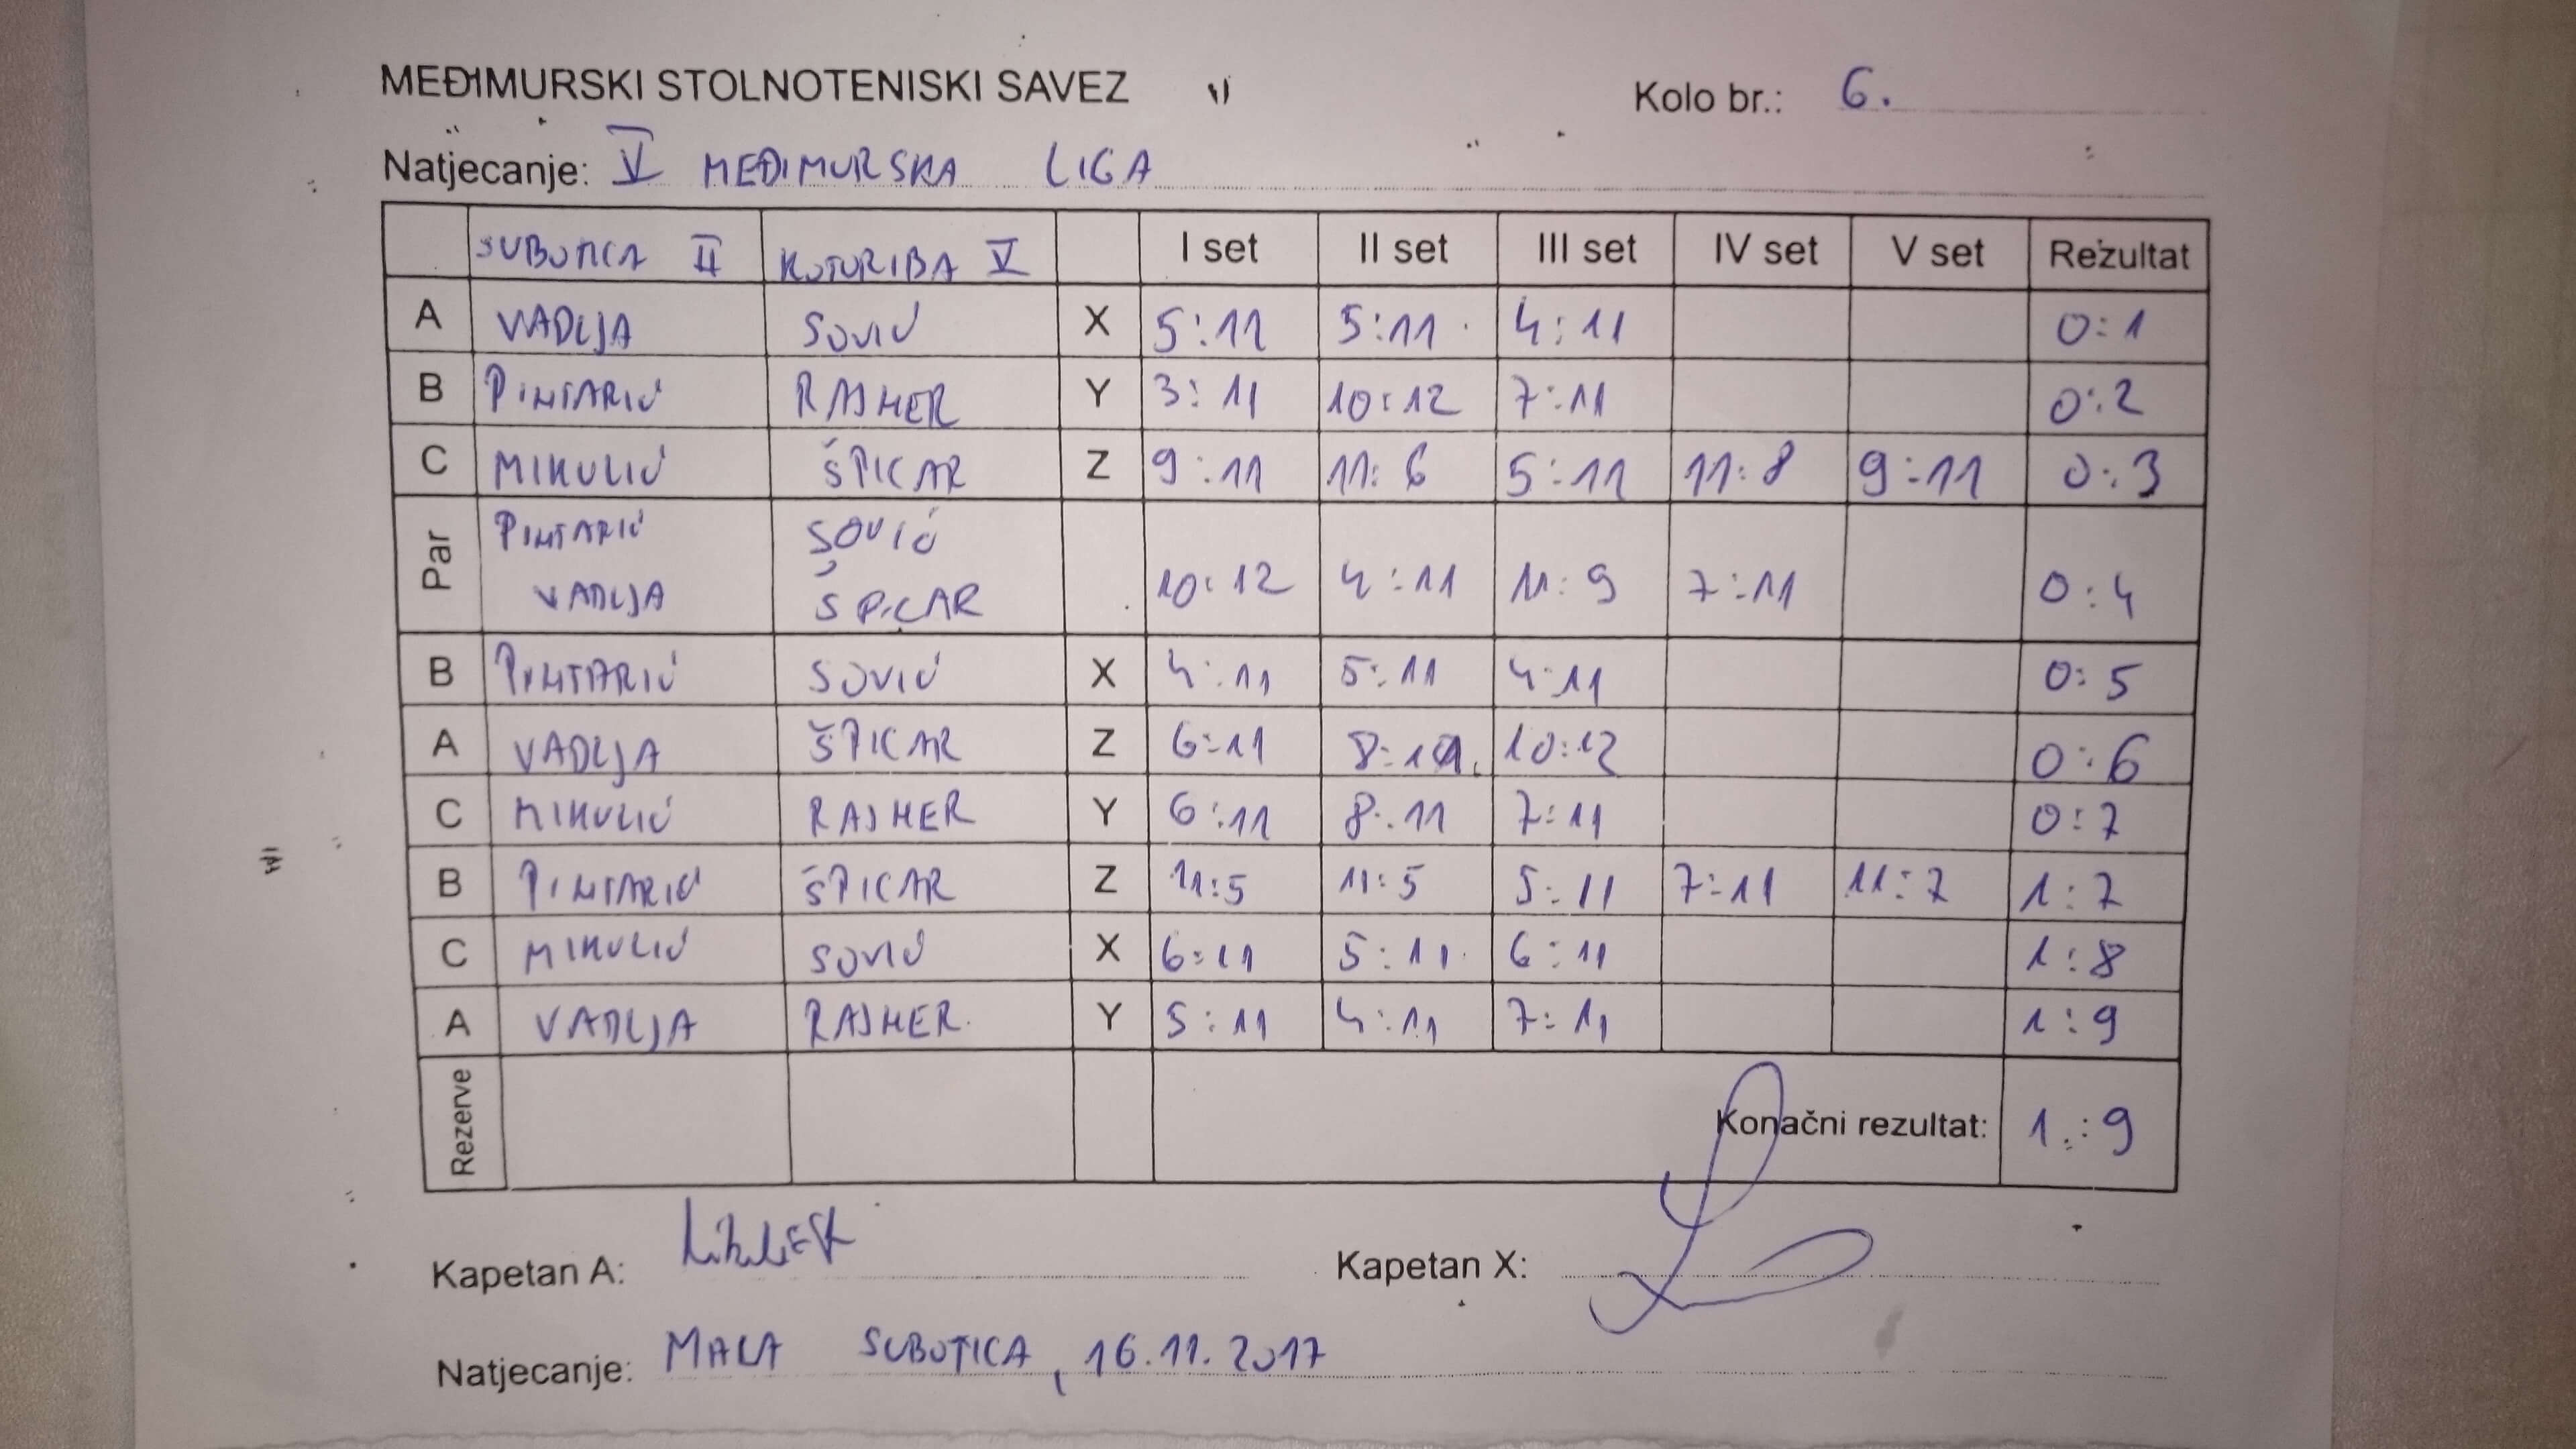 MEĐIMURSKI STOLNOTENISKI SAVEZ
Kolo br.: 6.
Natjecanje: V MEĐIMURSKA LIGA
SUBOTICA II KOTORIBA V I set II set III set IV set V set Rezultat
A VADLJA SOVIĆ X 5:11 5:11 4:11 0:1
B PINTARIĆ RAJHER Y 3:11 10:12 7:11 0:2
C MIKULIĆ ŠPICAR Z 9:11 11:6 5:11 11:8 9:11 0:3
Par PINTARIĆ VADLJA SOVIĆ ŠPICAR 10:12 4:11 11:9 7:11 0:4
B PINTARIĆ SOVIĆ X 4:11 5:11 4:11 0:5
A VADLJA ŠPICAR Z 6:11 8:11 10:12 0:6
C MIKULIĆ RAJHER Y 6:11 8:11 7:11 0:7
B PINTARIĆ ŠPICAR Z 11:5 11:5 5:11 7:11 11:7 1:7
C MIKULIĆ SOVIĆ X 6:11 5:11 6:11 1:8
A VADLJA RAJHER Y 5:11 4:11 7:11 1:9
Rezerve Konačni rezultat: 1:9
Kapetan A:
Kapetan X:
Natjecanje: MALA SUBOTICA, 16.11.2017